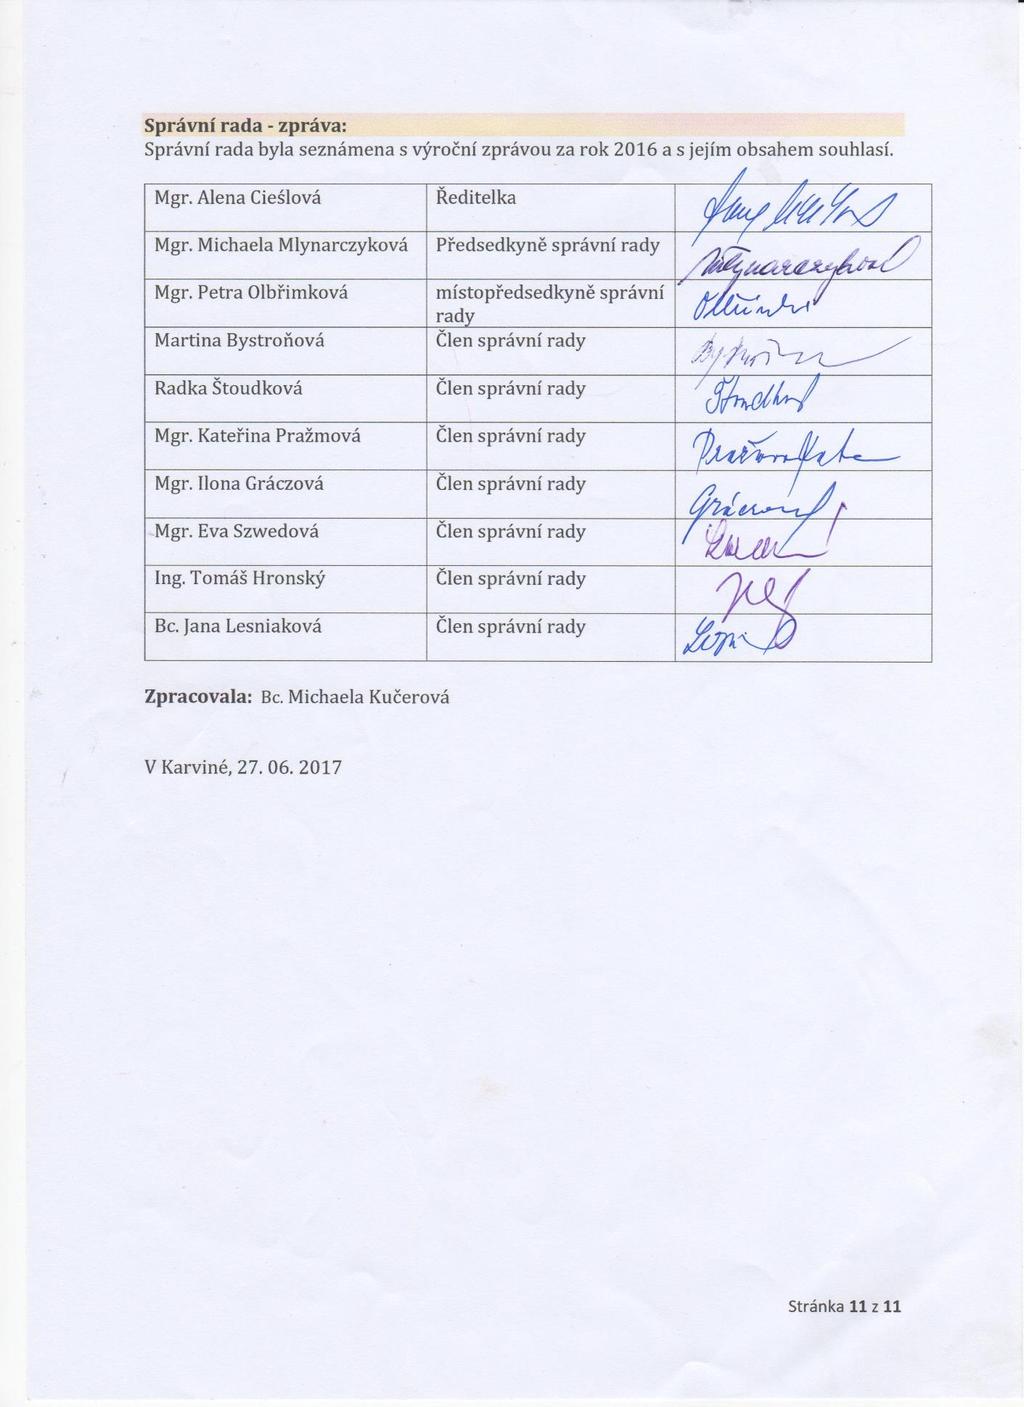 Správní rada - zpráva:
Správní rada byla seznámena s výroční zprávou za rok 2016 a s jejím obsahem souhlasí.
Mgr. Alena Cieślová Ředitelka
Mgr. Michaela Mlynarczyková Předsedkyně správní rady Mlynarczyková
Mgr. Petra Olbřimková místopředsedkyně správní
rady
Martina Bystroňová Člen správní rady
Radka Štoudková Člen správní rady
Mgr. Kateřina Pražmová Člen správní rady
Mgr. Ilona Gráczová Člen správní rady
Mgr. Eva Szwedová Člen správní rady
Ing. Tomáš Hronský Člen správní rady
Bc. Jana Lesniaková Člen správní rady
Zpracovala: Bc. Michaela Kučerová
V Karviné, 27. 06. 2017
Stránka 11 z 11